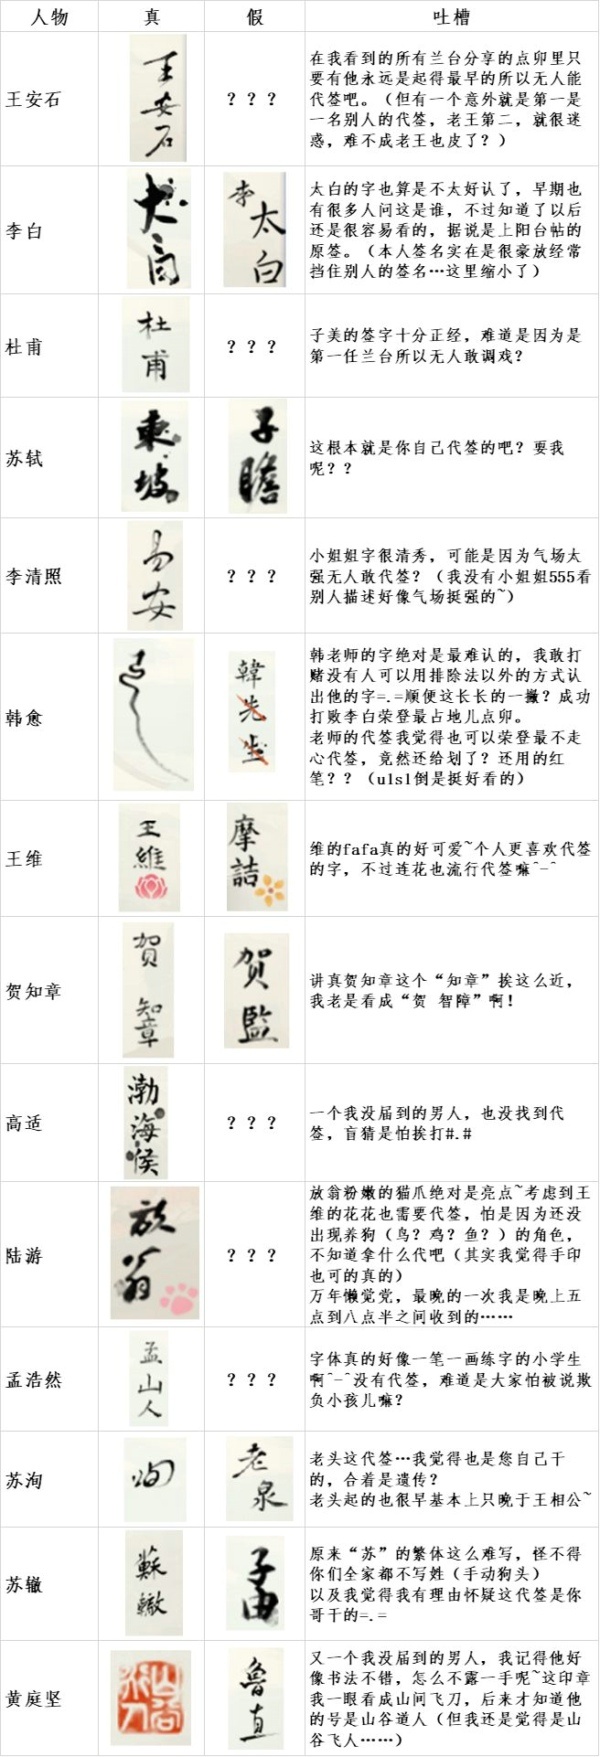 人物 真 假 吐槽
王安石
王安石
？？？
在我看到的所有兰台分享的点卯里只
要有他永远是起得最早的所以无人能
代签吧。（但有一个意外就是第一是
一名别人的代签，老王第二，就很迷
惑，难不成老王也皮了？）
李白
太白
李太白
太白的字也算是不太好认了，早期也
有很多人问这是谁，不过知道了以后
还是很容易看的，据说是上阳台帖的
原签。（本人签名实在是很豪放经常
挡住别人的签名…这里缩小了）
杜甫
杜甫
？？？
子美的签字十分正经，难道是因为是
第一任兰台所以无人敢调戏？
苏轼
東坡
子瞻
这根本就是你自己代签的吧？要我
呢？？
李清照
易安
？？？
小姐姐字很清秀，可能是因为气场太
强无人敢代签？（我没有小姐姐555看
别人描述好像气场挺强的~）
韩愈
韓先生
韩老师的字绝对是最难认的，我敢打
赌没有人可以用排除法以外的方式认
出他的字=.=顺便这长长的一撇？成功
打败李白荣登最占地儿点卯。
老师的代签我觉得也可以荣登最不走
心代签，竟然还给划了？还用的红
笔？？（ulsl倒是挺好看的）
王维
王維
摩詰
维的fafa真的好可爱~个人更喜欢代签
的字，不过连花也流行代签嘛^-^
贺知章
賀知章
賀監
讲真贺知章这个“知章”挨这么近，
我老是看成“贺 智障”啊！
高适
渤海侯
？？？
一个我没届到的男人，也没找到代
签，盲猜是怕挨打#.#
陆游
放翁
？？？
放翁粉嫩的猫爪绝对是亮点~考虑到王
维的花花也需要代签，怕是因为还没
出现养狗（鸟？鸡？鱼？）的角色，
不知道拿什么代吧（其实我觉得手印
也可的真的）
万年懒觉党，最晚的一次我是晚上五
点到八点半之间收到的……
孟浩然
孟山人
？？？
字体真的好像一笔一画练字的小学生
啊^-^没有代签，难道是大家怕被说欺
负小孩儿嘛？
苏洵
洵
老泉
老头这代签…我觉得也是您自己干
的，合着是遗传？
老头起的也很早基本上只晚于王相公~
苏辙
蘇轍
子由
原来“苏”的繁体这么难写，怪不得
你们全家都不写姓（手动狗头）
以及我觉得我有理由怀疑这代签是你
哥干的=.=
黄庭坚
魯直
又一个我没届到的男人，我记得他好
像书法不错，怎么不露一手呢~这印章
我一眼看成山问飞刀，后来才知道他
的号是山谷道人（但我还是觉得是山
谷飞人……）